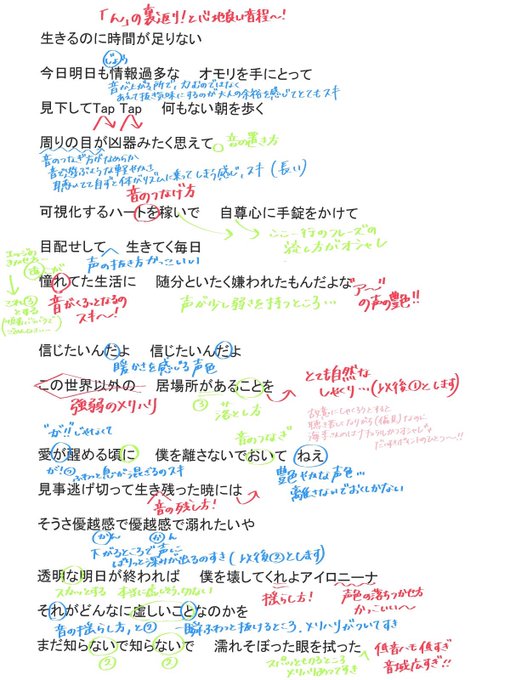 「ん」の裏返り！と心地良い音程〜！
生きるのに時間が足りない
今日明日も情報過多な　オモリを手にとって
音が上がる所で力むのではなく
あえて抜き気味にするのが大人の余裕を感じてとてもスキ
見下してTap Tap　何もない朝を歩く
周りの目が凶器みたく思えて。音の置き方
音のつなぎ方がなめらか
音で遊ぶような軽やかさ
聴いてて自ずと体がリズムに乗ってしまう感じ、スキ(長い)
音のつなげ方
可視化するハートを稼いで　自尊心に手錠をかけて
ここ一行のフレーズの
流し方がオシャレ
目配せして　生きてく毎日
声の抜き方がかっこいい
憧れてた生活に　随分といたく嫌われたもんだよな
"ア〜"の声の艶!!
音がくるっとなるの
スキ〜！
声が少し弱さを持つところ…
これ③
とする
信じたいんだよ　信じたいんだよ
暖かさを感じる声色
この世界以外の　居場所があることを
とても自然な
しゃくり…(以後①とします)
強弱のメリハリ
③
落とし方
"が!!"じゃなくて
音のつなぎ
愛が醒める頃に　僕を離さないでおいて　ねえ
が！ふわっと息が混ざるのスキ
艶やかな声色…
離さないでおくしかない
見事逃げ切って生き残った暁には
音の残し方！
そうさ優越感で優越感で溺れたいや
がん　かん
下がるところで声に
ぱりっと深みが出るのすき(以後②とします)
透明な明日が終われば　僕を壊してくれよアイロニーナ
スカッとする
揺らし方！
声色の落ちつかせ方
かっこいい〜
それがどんなに虚しいことなのかを
音の揺らし方、と②
一瞬ふわっと抜けるところ、メリハリがついてすき
まだ知らないで知らないで　濡れそぼった眼を拭った
②　②
スパッときるところ
メリハリあってすき
低音ハモ低すぎ
音域広すぎ!!